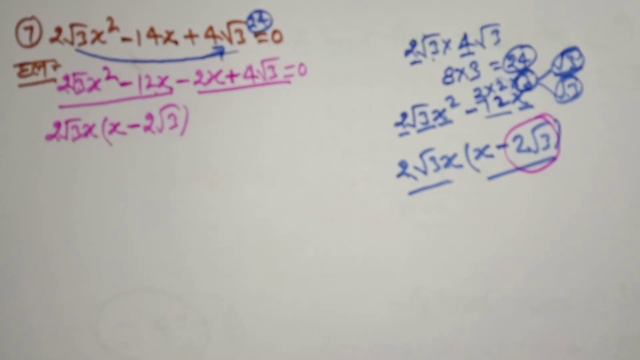 ⑦ 2√3x² - 14x + 4√3 = 0
24
2√3x² - 12x - 2x + 4√3 = 0
2√3x (x - 2√3)
2√3 × 4√3
8×3 = 24
√3
√3
2√3x² - 12x
2√3x (x - 2√3)